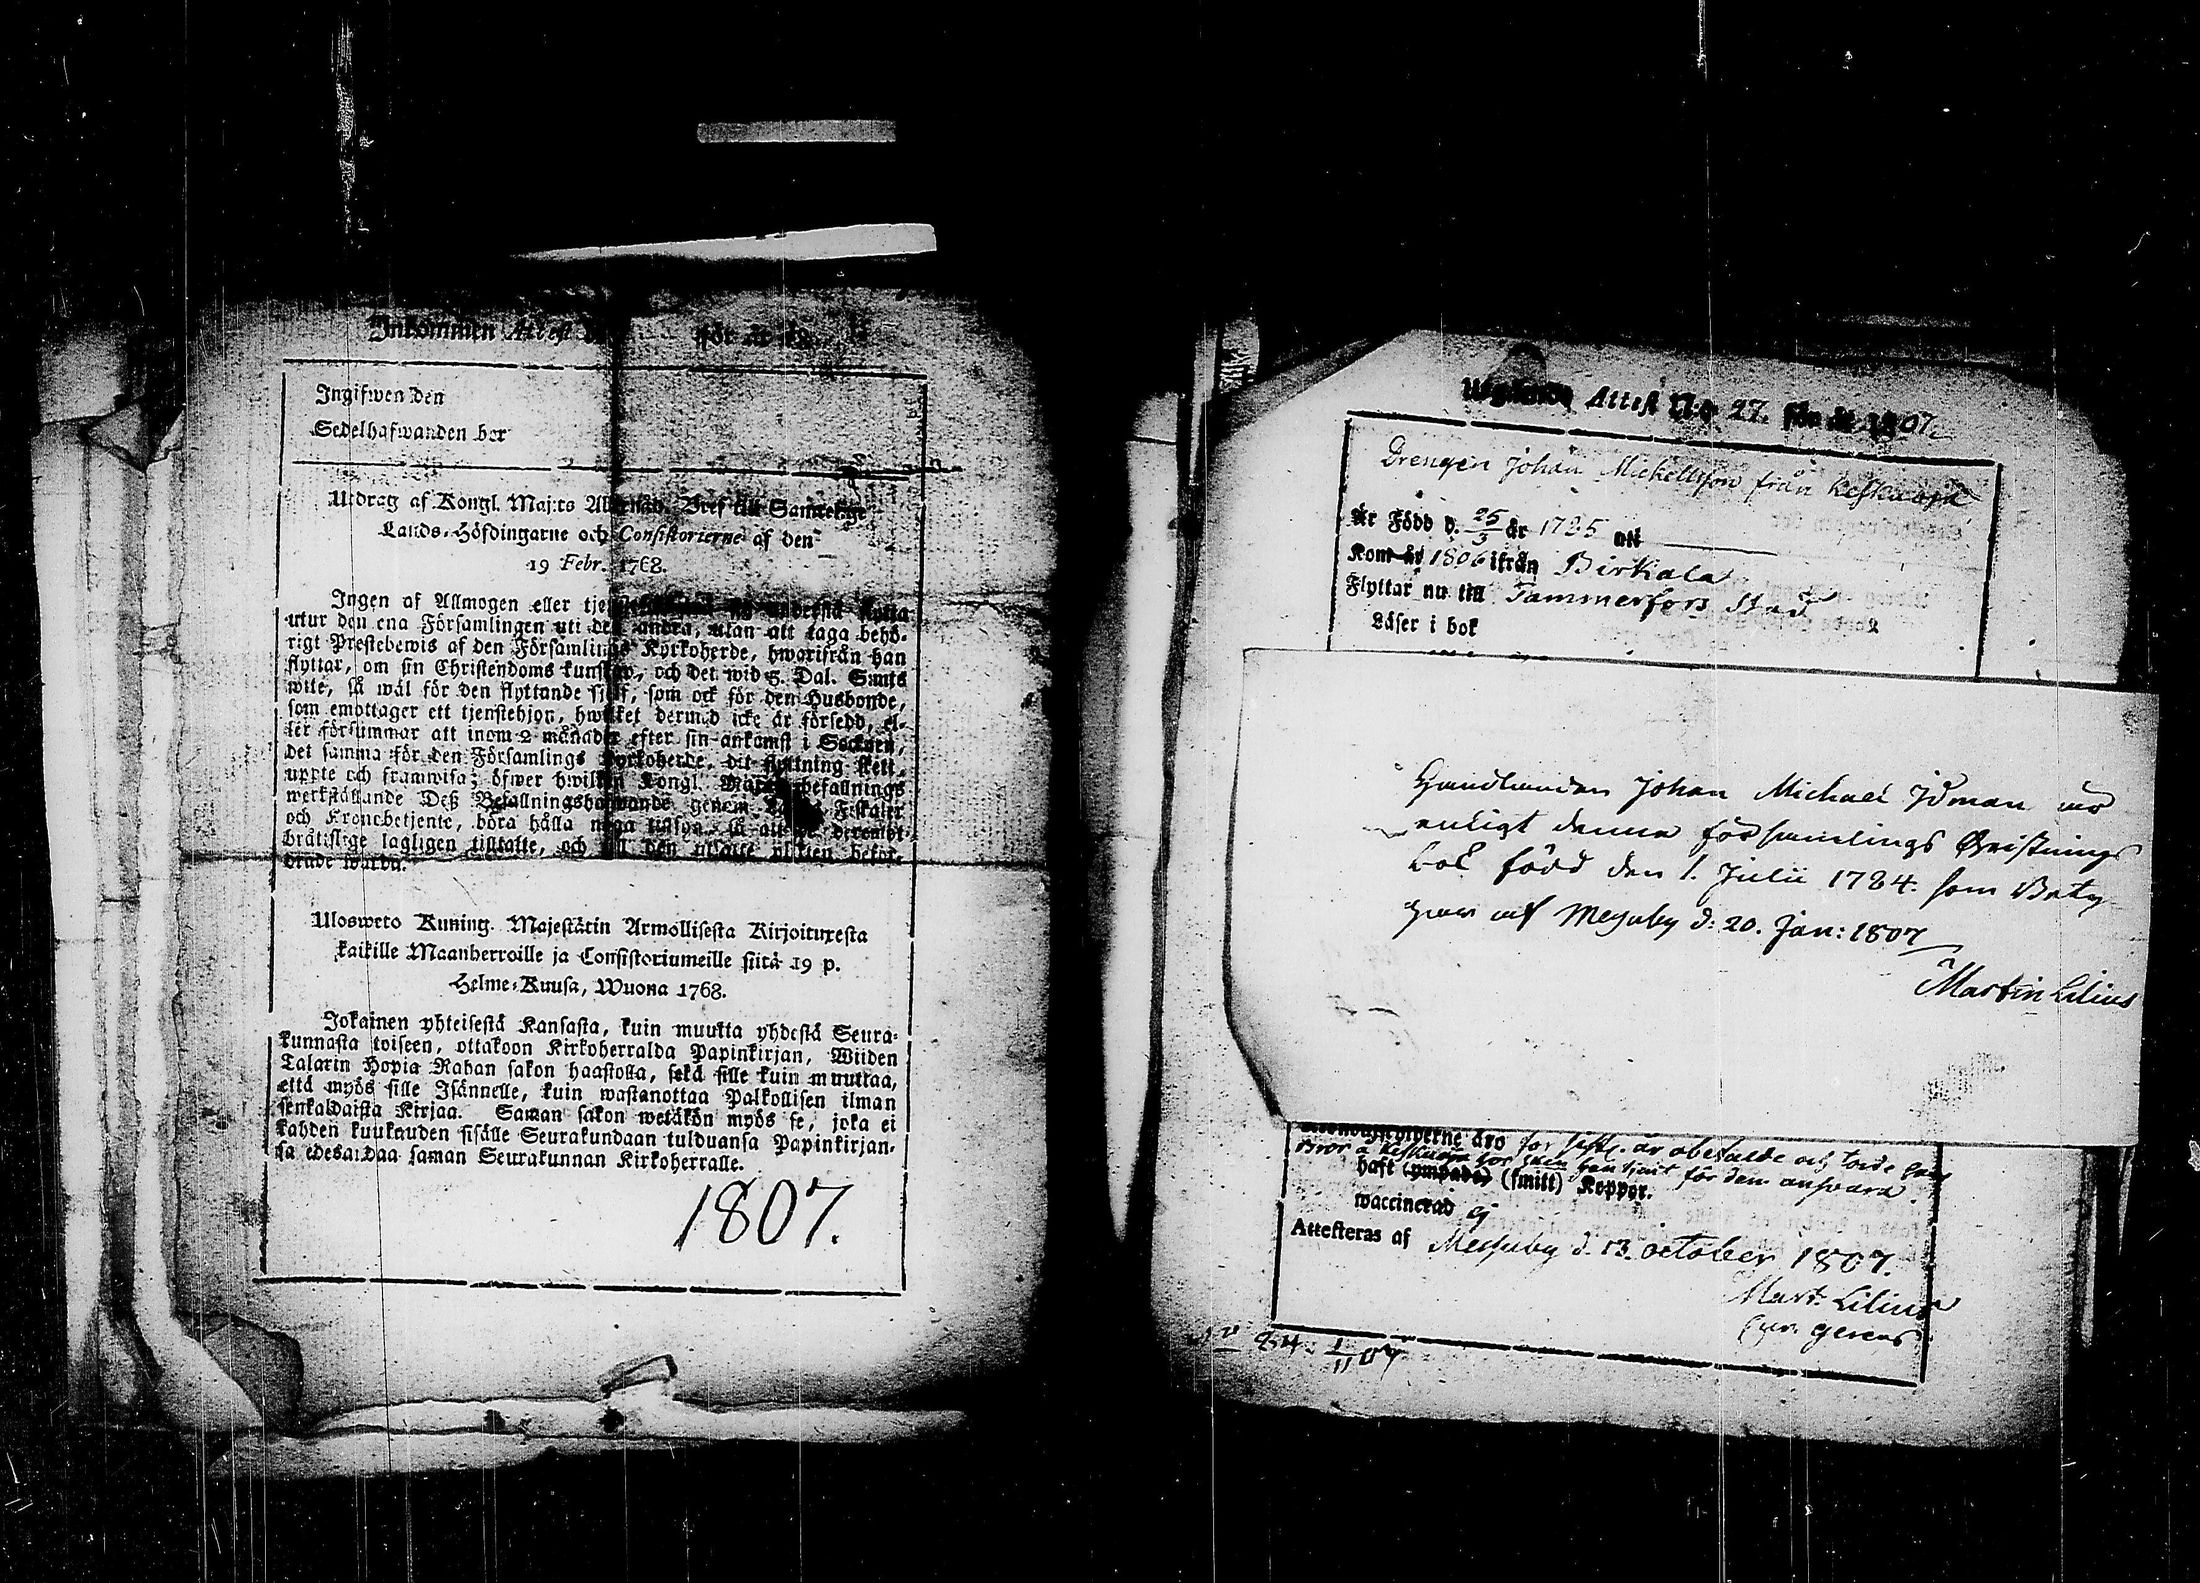 Inkommen Attest för år
Ingifwen den
Sedelhafwanden ber
Utdrag af Kongl. Maj:ts Allernåd. Bref till Samtelige
Lands-Höfdingarne och Consistorierne af den
19 Febr. 1768.
Ingen af Allmogen eller flytta
utur den ena Församlingen uti den andra, utan att taga behö-
rigt Prestebewis af den Församlings Kyrkoherde, hwarifrån han
flyttar, om sin Christendoms kunskap, och det wid 5 Dal. Smts
wite, så wäl för den flyttande sjelf, som ock för den Husbonde,
som emottager ett tjenstehjon, hwilket dermed icke är försedd, el-
ler försummar att inom 2 månader efter sin ankomst i Socknen,
det samma för den Församlings Kyrkoherde, dit flyttning skett,
uppte och framwisa; öfwer hwilken Kongl. Maj:ts befallnings
werkställande Deß Befallningshafwande genom Fiskaler
och Kronobetjente, böra hålla noga tilsyn, så att de deremot
brätslige lagligen tilltalte, och till den utsatte plikten befor-
drade warda.
Ulosweto Kuning. Majestätin Armollisesta Kirjoituxesta
kaikille Maanherroille ja Consistoriumeille siitä 19 p.
Helme-Kuusa, Wuona 1768.
Jokainen yhteisestä Kansasta, kuin muutta yhdestä Seura-
kunnasta toiseen, ottakoon Kirkoherralda Papinkirjan, Wiiden
Talarin Hopia Rahan sakon haastolla, sekä sille kuin muuttaa,
että myös sille Isännelle, kuin wastanottaa Palkollisen ilman
senkaldaista Kirjaa. Saman sakon wetäkön myös se, joka ei
kahden kuukauden sisälle Seurakundaan tulduansa Papinkirjan-
sa edesandaa saman Seurakunnan Kirkoherralle.
1807.
Utgående Attest No 27. för år 1807.
Drengen Johan Michellsson från Keskuoja
Är Född d. 25/3 år 1785 uti
Kom år 1806 ifrån Birkala
Flyttar nu till Tammerfors Stad
Läser i bok
Handlanden Johan Michael Idman är
enligt denna församlings Christnings
bok född den 1. Julii 1784. som Bety-
gar af Messuby d: 20. Jan: 1807
Martin Lilius
äro för sistl. år obetalde och torde hans
Bror å Keskuoja hos hvem han tjent för dem ansvara.
haft (ympade) (smitt) Koppor.
waccinerad ej
Attesteras af Messuby d. 13. october 1807.
Mart. Lilius
gerens